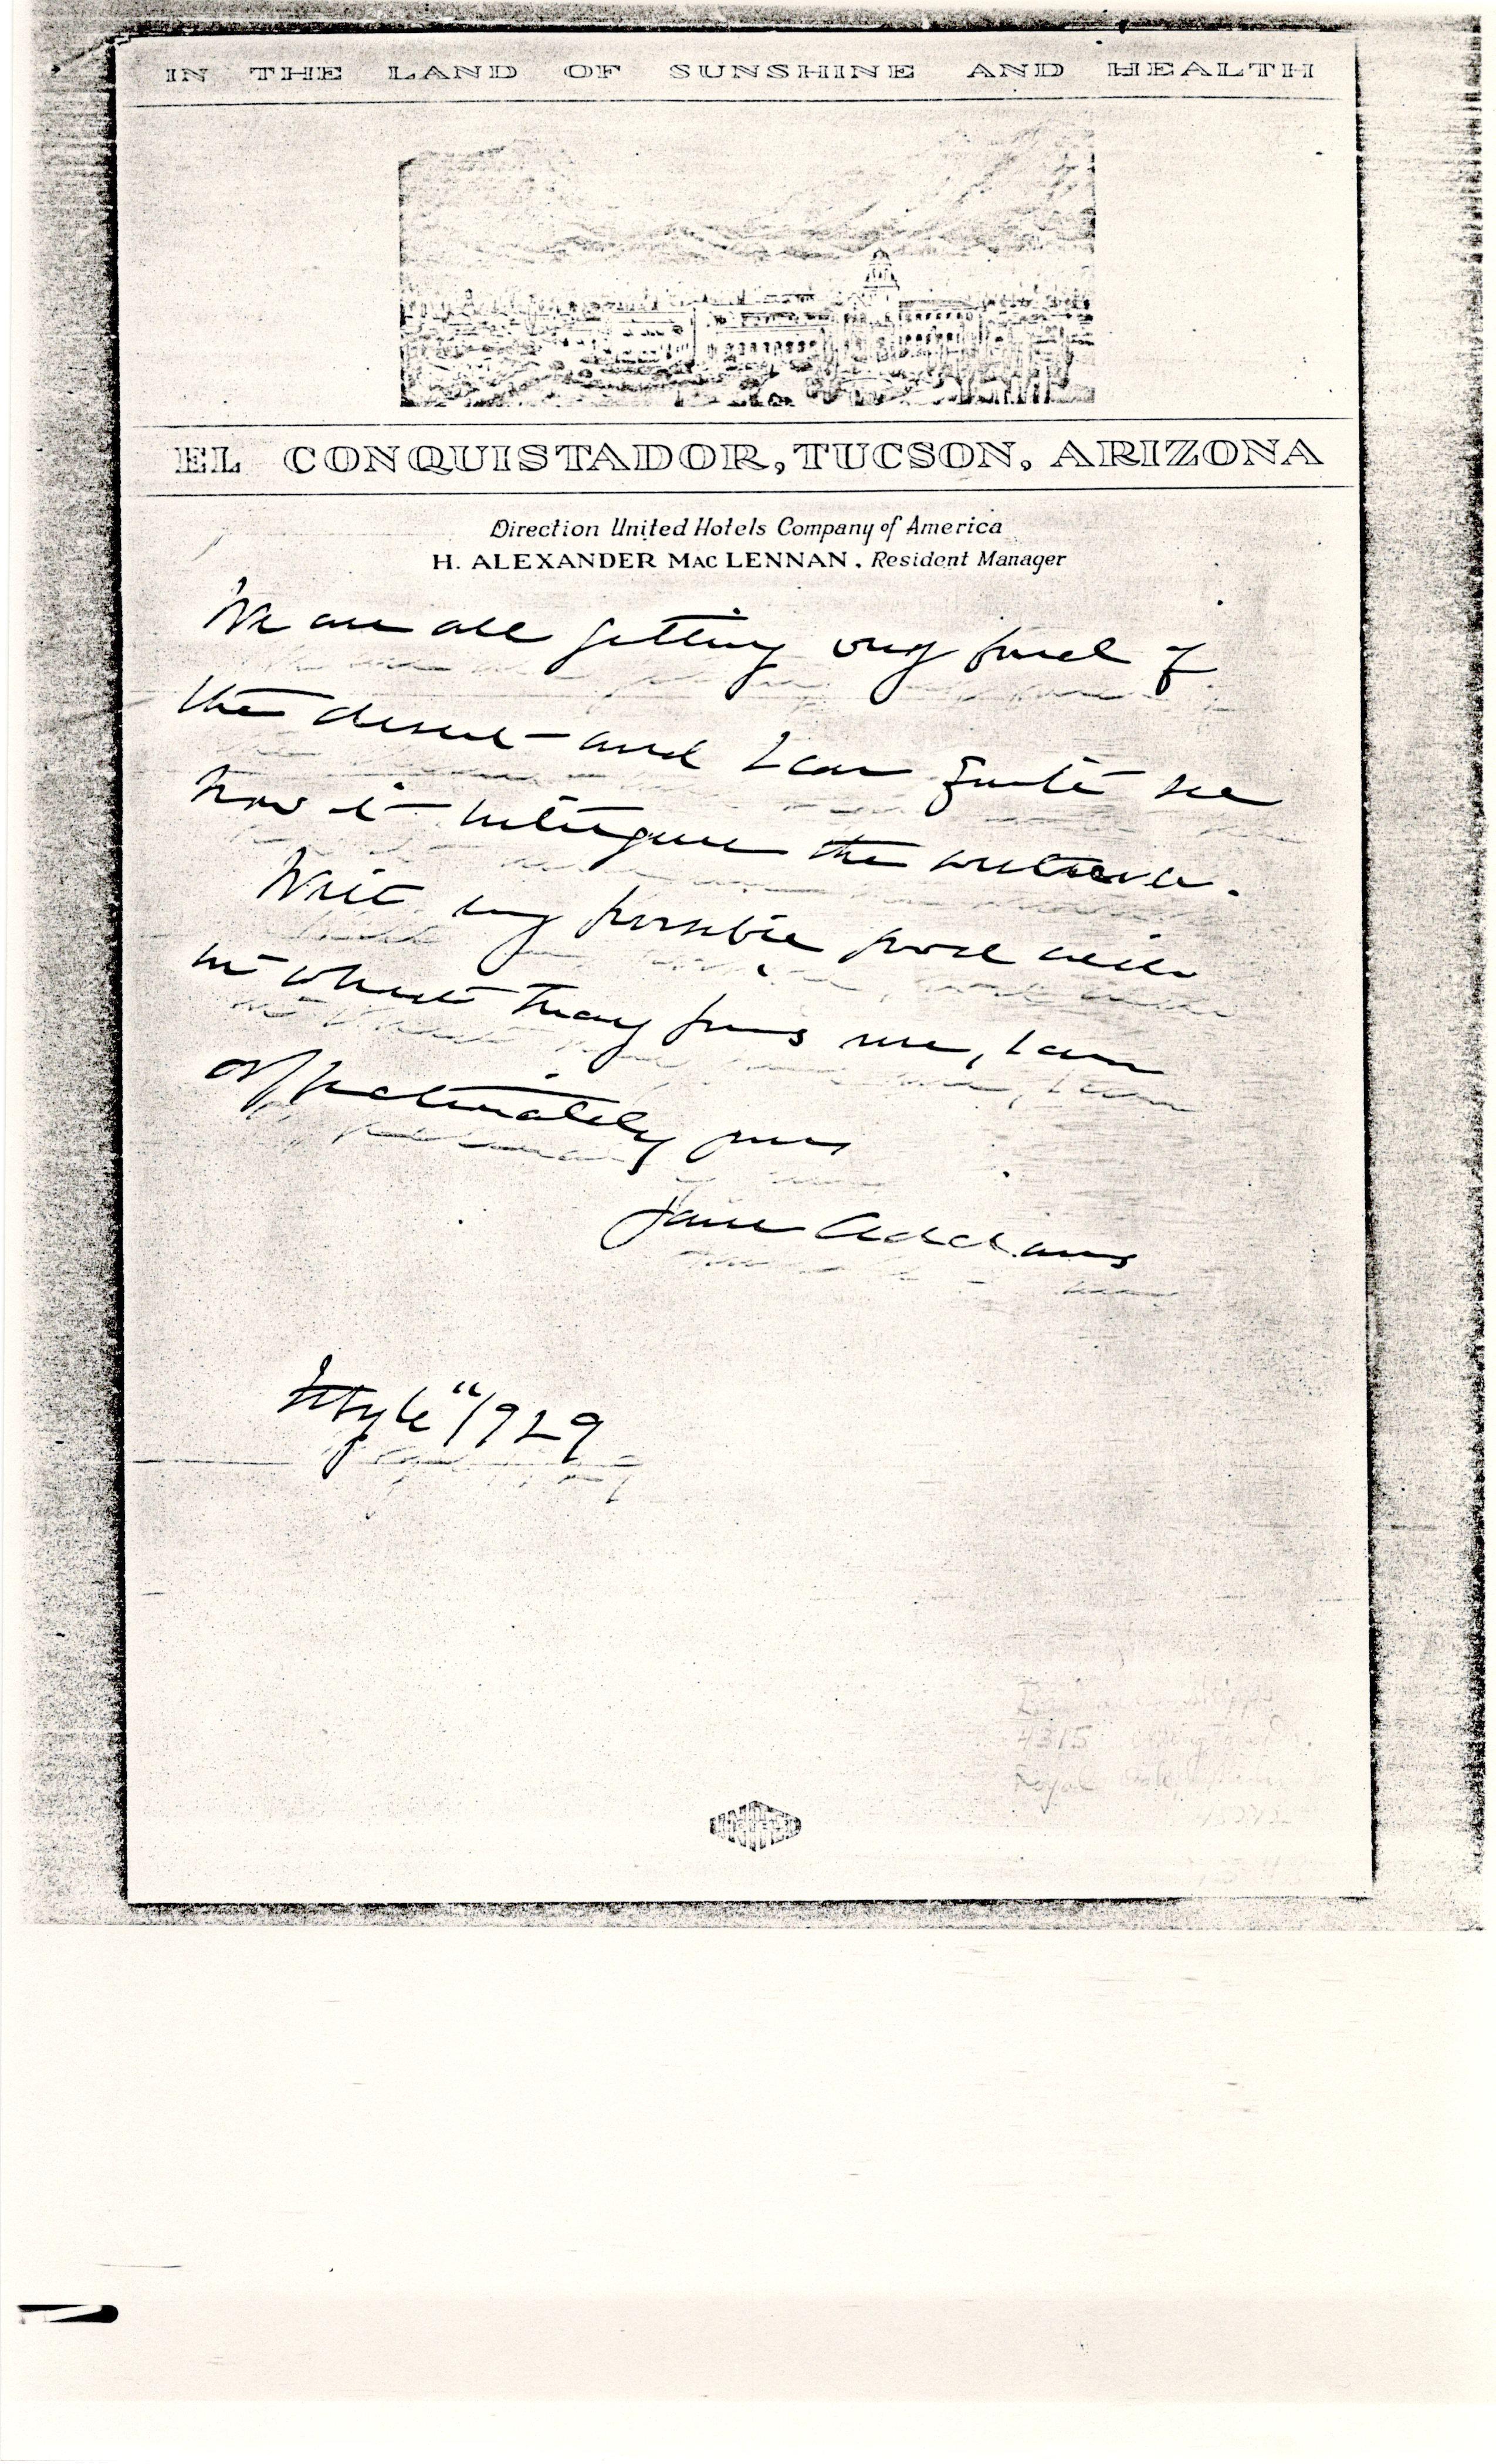 IN THE LAND OF SUNSHINE AND HEALTH
EL CONQUISTADOR, TUCSON, ARIZONA
Direction United Hotels Company of America
H. ALEXANDER MAC LENNAN, Resident Manager
We are all getting very fond of
the desert and I can quite see
how it intrigues the
With every possible good wish
in which may joins me, I am
affectionately yours
Jane Addams
1929
4315
Royal